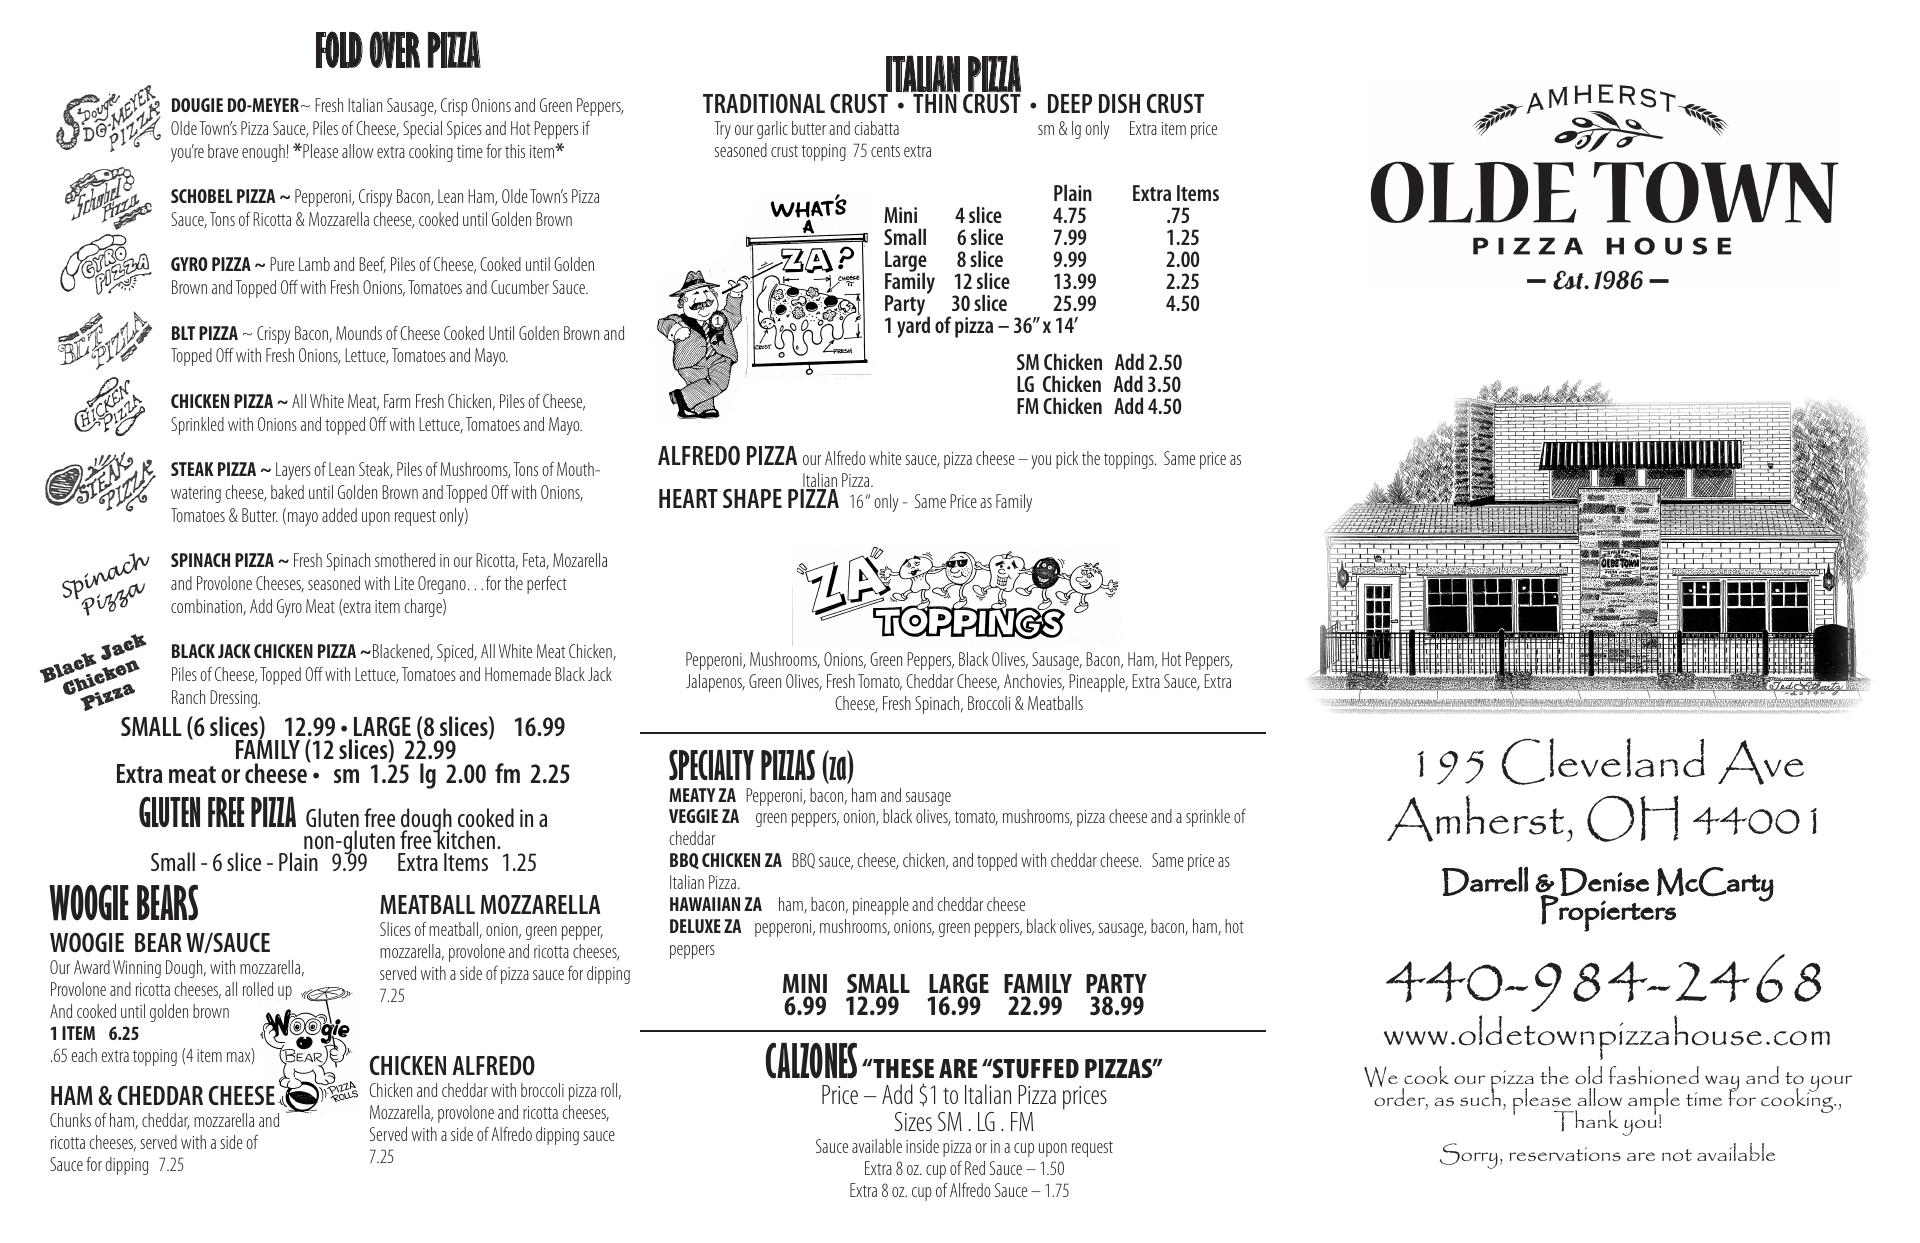 FOLD OVER PIZZA
Dougie DO-MEYER PIZZA
DOUGIE DO-MEYER~ Fresh Italian Sausage, Crisp Onions and Green Peppers,
Olde Town's Pizza Sauce, Piles of Cheese, Special Spices and Hot Peppers if
you're brave enough! *Please allow extra cooking time for this item*
Schobel Pizza
SCHOBEL PIZZA ~ Pepperoni, Crispy Bacon, Lean Ham, Olde Town's Pizza
Sauce, Tons of Ricotta & Mozzarella cheese, cooked until Golden Brown
GYRO PIZZA
GYRO PIZZA ~ Pure Lamb and Beef, Piles of Cheese, Cooked until Golden
Brown and Topped Off with Fresh Onions, Tomatoes and Cucumber Sauce.
BLT PIZZA
BLT PIZZA ~ Crispy Bacon, Mounds of Cheese Cooked Until Golden Brown and
Topped Off with Fresh Onions, Lettuce, Tomatoes and Mayo.
CHICKEN PIZZA
CHICKEN PIZZA ~ All White Meat, Farm Fresh Chicken, Piles of Cheese,
Sprinkled with Onions and topped Off with Lettuce, Tomatoes and Mayo.
STEAK PIZZA
STEAK PIZZA ~ Layers of Lean Steak, Piles of Mushrooms, Tons of Mouth-
watering cheese, baked until Golden Brown and Topped Off with Onions,
Tomatoes & Butter. (mayo added upon request only)
Spinach
Pizza
SPINACH PIZZA ~ Fresh Spinach smothered in our Ricotta, Feta, Mozarella
and Provolone Cheeses, seasoned with Lite Oregano. . . for the perfect
combination, Add Gyro Meat (extra item charge)
Black Jack
Chicken
Pizza
BLACK JACK CHICKEN PIZZA ~Blackened, Spiced, All White Meat Chicken,
Piles of Cheese, Topped Off with Lettuce, Tomatoes and Homemade Black Jack
Ranch Dressing.
SMALL (6 slices) 12.99 • LARGE (8 slices) 16.99
FAMILY (12 slices) 22.99
Extra meat or cheese • sm 1.25 lg 2.00 fm 2.25
GLUTEN FREE PIZZA Gluten free dough cooked in a
non-gluten free kitchen.
Small - 6 slice - Plain 9.99 Extra Items 1.25
WOOGIE BEARS
WOOGIE BEAR W/SAUCE
Our Award Winning Dough, with mozzarella,
Provolone and ricotta cheeses, all rolled up
And cooked until golden brown
1 ITEM 6.25
.65 each extra topping (4 item max)
HAM & CHEDDAR CHEESE
Chunks of ham, cheddar, mozzarella and
ricotta cheeses, served with a side of
Sauce for dipping 7.25
Woogie
BEAR
PIZZA
ROLLS
MEATBALL MOZZARELLA
Slices of meatball, onion, green pepper,
mozzarella, provolone and ricotta cheeses,
served with a side of pizza sauce for dipping
7.25
CHICKEN ALFREDO
Chicken and cheddar with broccoli pizza roll,
Mozzarella, provolone and ricotta cheeses,
Served with a side of Alfredo dipping sauce
7.25
ITALIAN PIZZA
TRADITIONAL CRUST • THIN CRUST • DEEP DISH CRUST
Try our garlic butter and ciabatta sm & lg only Extra item price
seasoned crust topping 75 cents extra
WHAT'S
A
ZA?
CHEESE
CRUST
FRESH
1
Plain Extra Items
Mini 4 slice 4.75 .75
Small 6 slice 7.99 1.25
Large 8 slice 9.99 2.00
Family 12 slice 13.99 2.25
Party 30 slice 25.99 4.50
1 yard of pizza – 36” x 14’
SM Chicken Add 2.50
LG Chicken Add 3.50
FM Chicken Add 4.50
ALFREDO PIZZA our Alfredo white sauce, pizza cheese – you pick the toppings. Same price as
Italian Pizza.
HEART SHAPE PIZZA 16“ only - Same Price as Family
"ZA"
TOPPINGS
Pepperoni, Mushrooms, Onions, Green Peppers, Black Olives, Sausage, Bacon, Ham, Hot Peppers,
Jalapenos, Green Olives, Fresh Tomato, Cheddar Cheese, Anchovies, Pineapple, Extra Sauce, Extra
Cheese, Fresh Spinach, Broccoli & Meatballs
SPECIALTY PIZZAS (za)
MEATY ZA Pepperoni, bacon, ham and sausage
VEGGIE ZA green peppers, onion, black olives, tomato, mushrooms, pizza cheese and a sprinkle of
cheddar
BBQ CHICKEN ZA BBQ sauce, cheese, chicken, and topped with cheddar cheese. Same price as
Italian Pizza.
HAWAIIAN ZA ham, bacon, pineapple and cheddar cheese
DELUXE ZA pepperoni, mushrooms, onions, green peppers, black olives, sausage, bacon, ham, hot
peppers
MINI SMALL LARGE FAMILY PARTY
6.99 12.99 16.99 22.99 38.99
CALZONES “THESE ARE “STUFFED PIZZAS”
Price – Add $1 to Italian Pizza prices
Sizes SM . LG . FM
Sauce available inside pizza or in a cup upon request
Extra 8 oz. cup of Red Sauce – 1.50
Extra 8 oz. cup of Alfredo Sauce – 1.75
AMHERST
OLDE TOWN
PIZZA HOUSE
– Est. 1986 –
OLDE TOWN
195 Cleveland Ave
Amherst, OH 44001
Darrell & Denise McCarty
Propierters
440-984-2468
www.oldetownpizzahouse.com
We cook our pizza the old fashioned way and to your
order, as such, please allow ample time for cooking.,
Thank you!
Sorry, reservations are not available